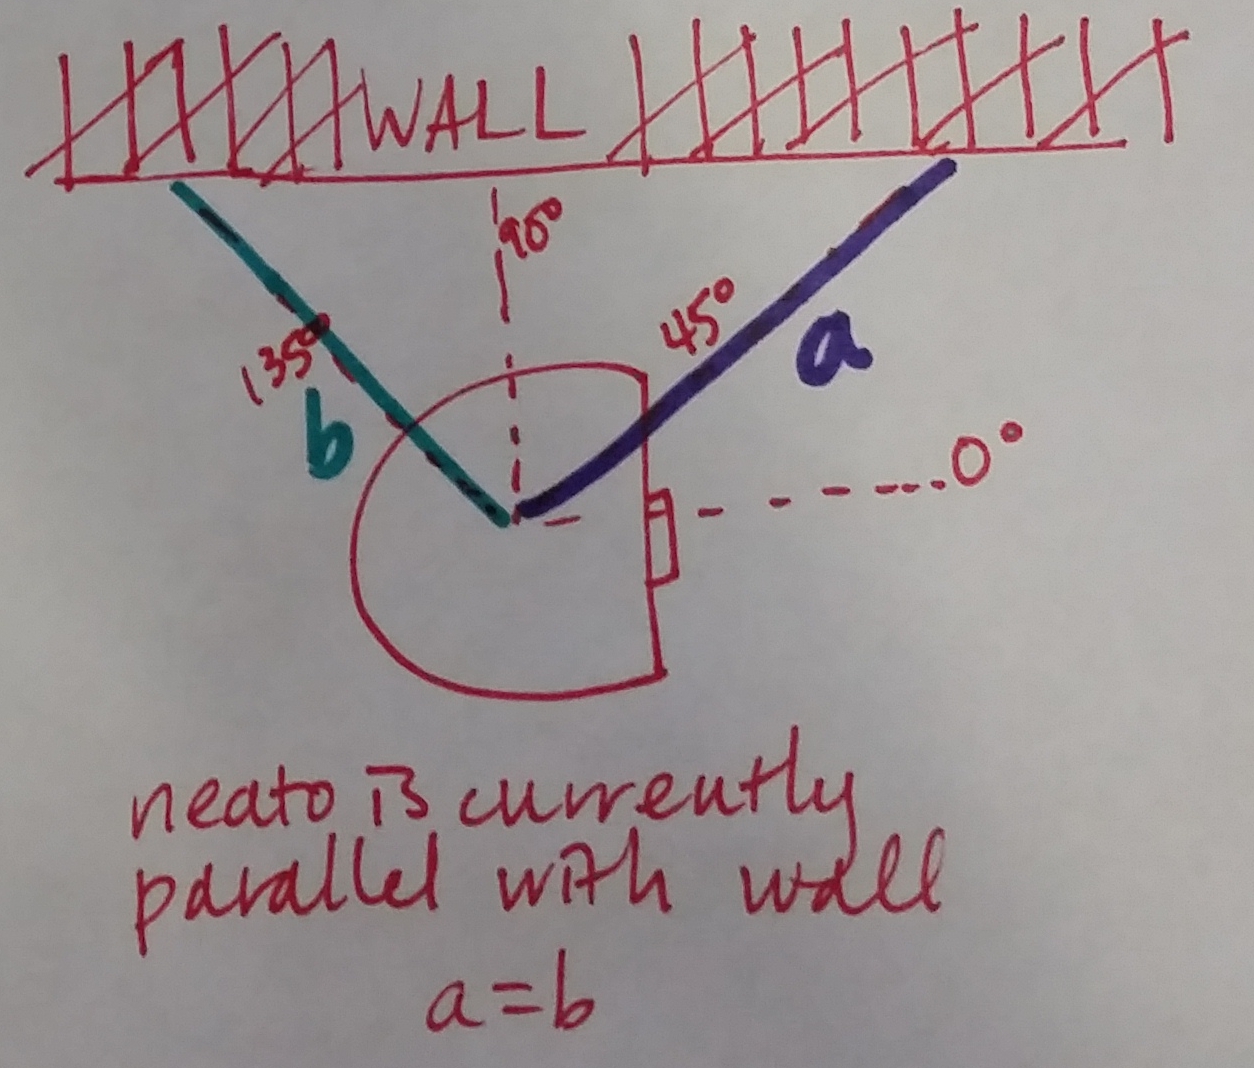 WALL
90°
45°
a
135°
b
0°
neato is currently
parallel with wall
a=b